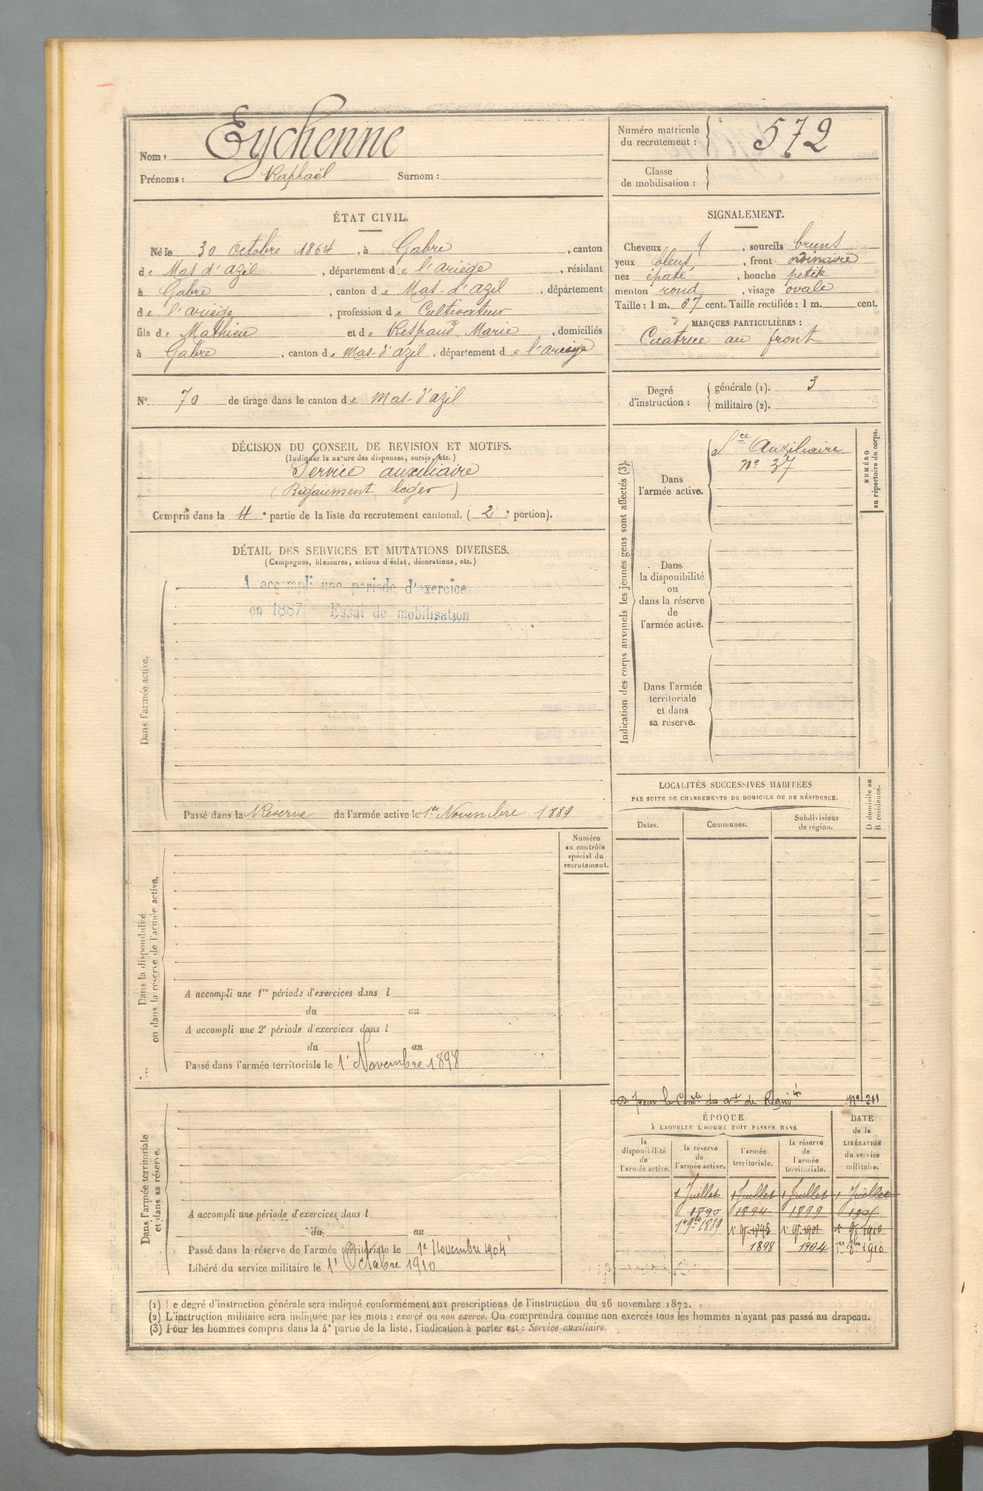 Nom: Eychenne
Prénoms: Raphaël Surnom:
Numéro matricule du recrutement: 572
Classe de mobilisation:
ÉTAT CIVIL.
Né le 30 Octobre 1864, à Gabre, canton
de Mas d'azil, département de l'ariège, résidant
à Gabre, canton de Mas-d'azil, département
de l'ariège, profession de Cultivateur
fils de Mathieu et de Respaud Marie, domiciliés
à Gabre, canton de Mas-d'azil, département de l'ariège
SIGNALEMENT.
Cheveux, sourcils bruns
yeux bleus, front ordinaire
nez épaté, bouche petite
menton rond, visage ovale
Taille: 1 m. 67 cent. Taille rectifiée: 1 m. cent.
MARQUES PARTICULIÈRES:
Cicatrice au front
N° 70 de tirage dans le canton de Mas-d'azil
Degré d'instruction: générale (1). 3
militaire (2).
DÉCISION DU CONSEIL DE REVISION ET MOTIFS.
(Indiquer la nature des dispenses, sursis, etc.)
Service auxiliaire
(Bégaiement léger)
Compris dans la 4e partie de la liste du recrutement cantonal. (2e portion).
DÉTAIL DES SERVICES ET MUTATIONS DIVERSES.
(Campagnes, blessures, actions d'éclat, décorations, etc.)
A accompli une période d'exercice
en 1887 Essai de mobilisation
Dans l'armée active.
Passé dans la Réserve de l'armée active le 1er Novembre 1889
Indication des corps auxquels les jeunes gens sont affectés (3).
Dans l'armée active.
Sce Auxiliaire
N° 37
NUMÉRO au répertoire du corps.
Dans la disponibilité ou dans la réserve de l'armée active.
Dans l'armée territoriale et dans sa réserve.
LOCALITÉS SUCCESSIVES HABITÉES
PAR SUITE DE CHANGEMENTS DE DOMICILE OU DE RÉSIDENCE.
Dates. Communes. Subdivisions de région.
D domicile ou R résidence.
Numéro au contrôle spécial du recrutement.
Dans la disponibilité ou dans la réserve de l'armée active.
A accompli une 1re période d'exercices dans l
du au
A accompli une 2e période d'exercices dans l
du au
Passé dans l'armée territoriale le 1er Novembre 1898
Dans l'armée territoriale et dans sa réserve.
A accompli une période d'exercices dans l
du au
Passé dans la réserve de l'armée territoriale le 1er Novembre 1904
Libéré du service militaire le 1er Octobre 1910
N° 311
ÉPOQUE
À LAQUELLE L'HOMME DOIT PASSER DANS
DATE de la LIBÉRATION du service militaire.
la disponibilité de l'armée active. la réserve de l'armée active. l'armée territoriale. la réserve de l'armée territoriale.
1 Juillet 1 Juillet 1 Juillet 1 Juillet
1890 1894 1899
1889 1910
1898 1904 1910
(1) Le degré d'instruction générale sera indiqué conformément aux prescriptions de l'instruction du 26 novembre 1872.
(2) L'instruction militaire sera indiquée par les mots: exercé ou non exercé. On comprendra comme non exercés tous les hommes n'ayant pas passé au drapeau.
(3) Pour les hommes compris dans la 4e partie de la liste, l'indication à porter est: Service auxiliaire.